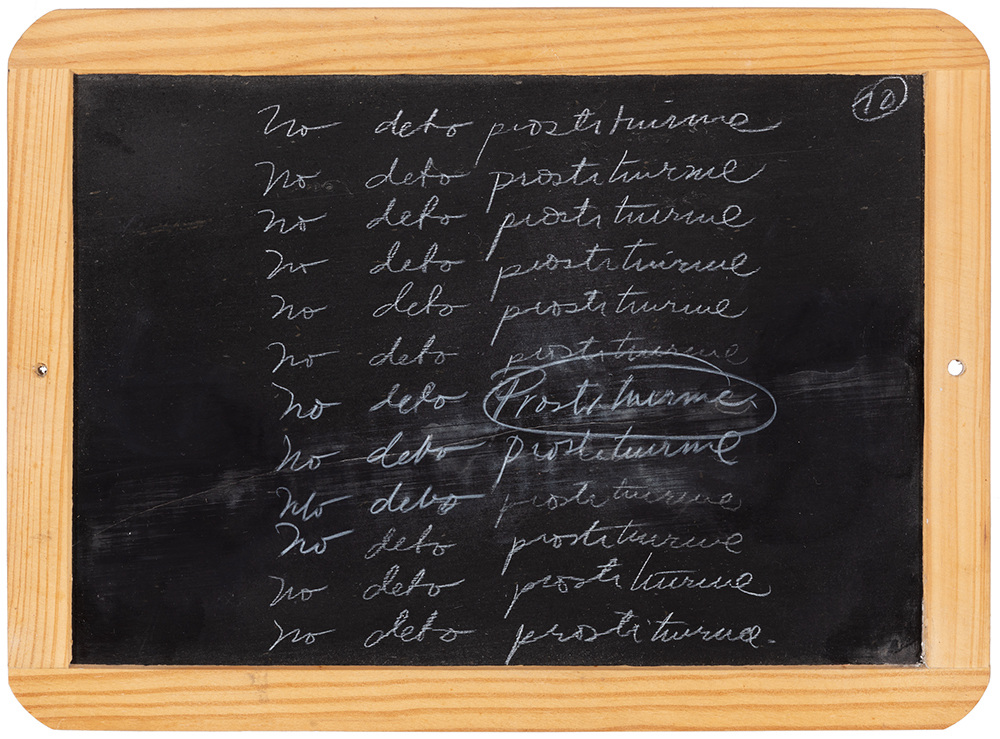 10
No debo prostituirme
No debo prostituirme
No debo prostituirme
No debo prostituirme
No debo prostituirme
No debo prostituirme
No debo Prostituirme
No debo prostituirme
No debo prostituirme
No debo prostituirme
No debo prostituirme
No debo prostituirme.